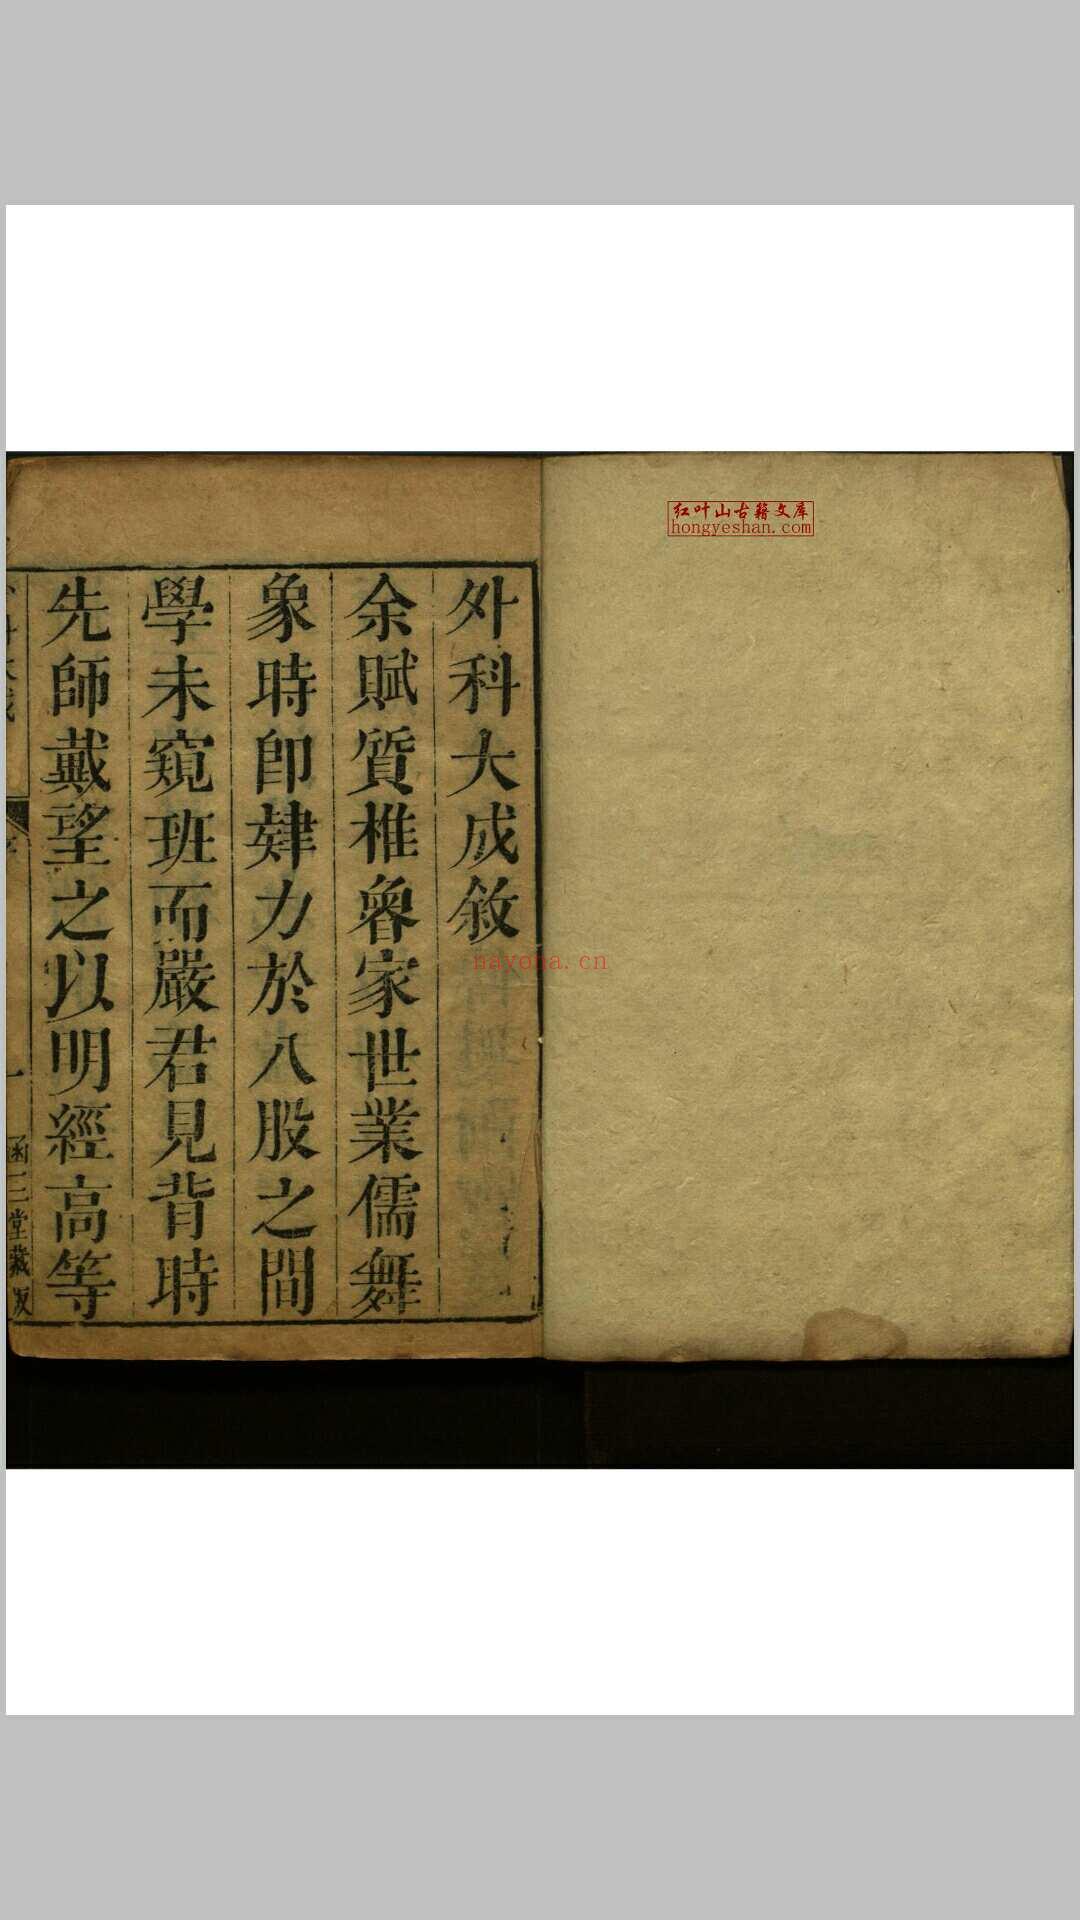 红叶山古籍文库
hongyeshan.com
外科大成敘
余賦質椎魯家世業儒舞
象時即肄力於八股之間
學未窺班而嚴君見背時
先師戴望之以明經高等
一
函三堂藏版
nayona.cn